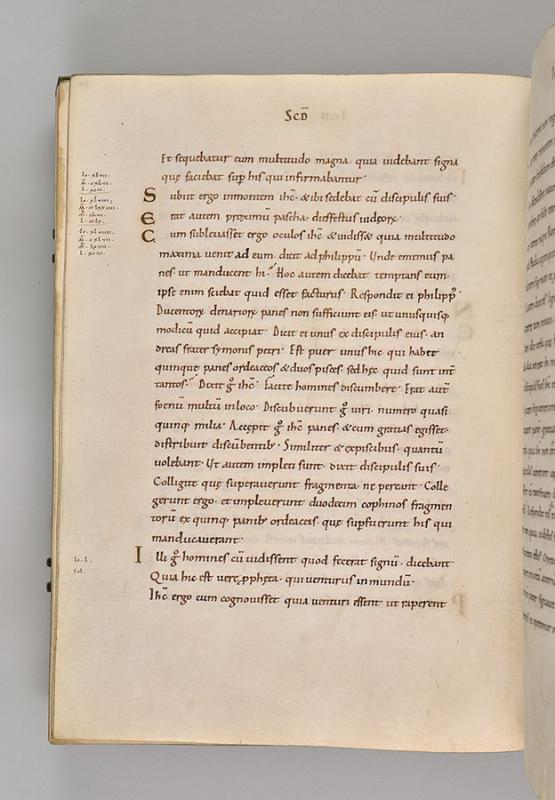 Scd̄
Et sequebatur eum multitudo magna· quia uidebant signa
quę faciebat sup̄ his qui infirmabantur·
Subiit ergo in montem ihc̄· & ibi sedebat cū discipulis suis·
Erat autem proximū pascha· dies festus iudęorꝝ·
Cum subleuasset ergo oculos ihc̄ & uidiss& quia multitudo
maxima uenit ad eum· dicit ad philippū· Unde ememus pa
nes ut manducent hi· Hoc autem dicebat temptans eum·
ipse enim sciebat quid esset facturus· Respondit ei philipp᛫
Ducentorꝝ denariorꝝ panes non sufficiunt eis· ut unusquisq·
modicū quid accipiat· Dicit ei unus ex discipulis eius· an
dreas frater symonis petri· Est puer unus hic· qui habet
quinque panes ordeaceos & duos pisces· sed hęc quid sunt int̄
tantos· Dixit g̊ ihc̄· Facite homines discumbere· Erat aut̄
foenū multū in loco· Discubuerunt g̊ uiri· numero quasi
quinq· milia· Accepit g̊ ihc̄ panes· & cum gratias egisset·
distribuit discūbentib·· Similiter & ex piscibus· quantū
uolebant· Ut autem impleti sunt· dixit discipulis suis·
Colligite quę superauerunt fragmenta· ne pereant· Colle
gerunt ergo· et impleuerunt duodecim cophinos fragmen
torū ex quinq· panib· ordeaceis· quę supfuerunt his qui
manducauerant·
Illi g̊ homines cū uidissent quod fecerat signū· dicebant·
Quia hic est uere p̱ph&a· qui uenturus in mundū·
Ihc̄ ergo cum cognouisset quia uenturi essent ut raperent